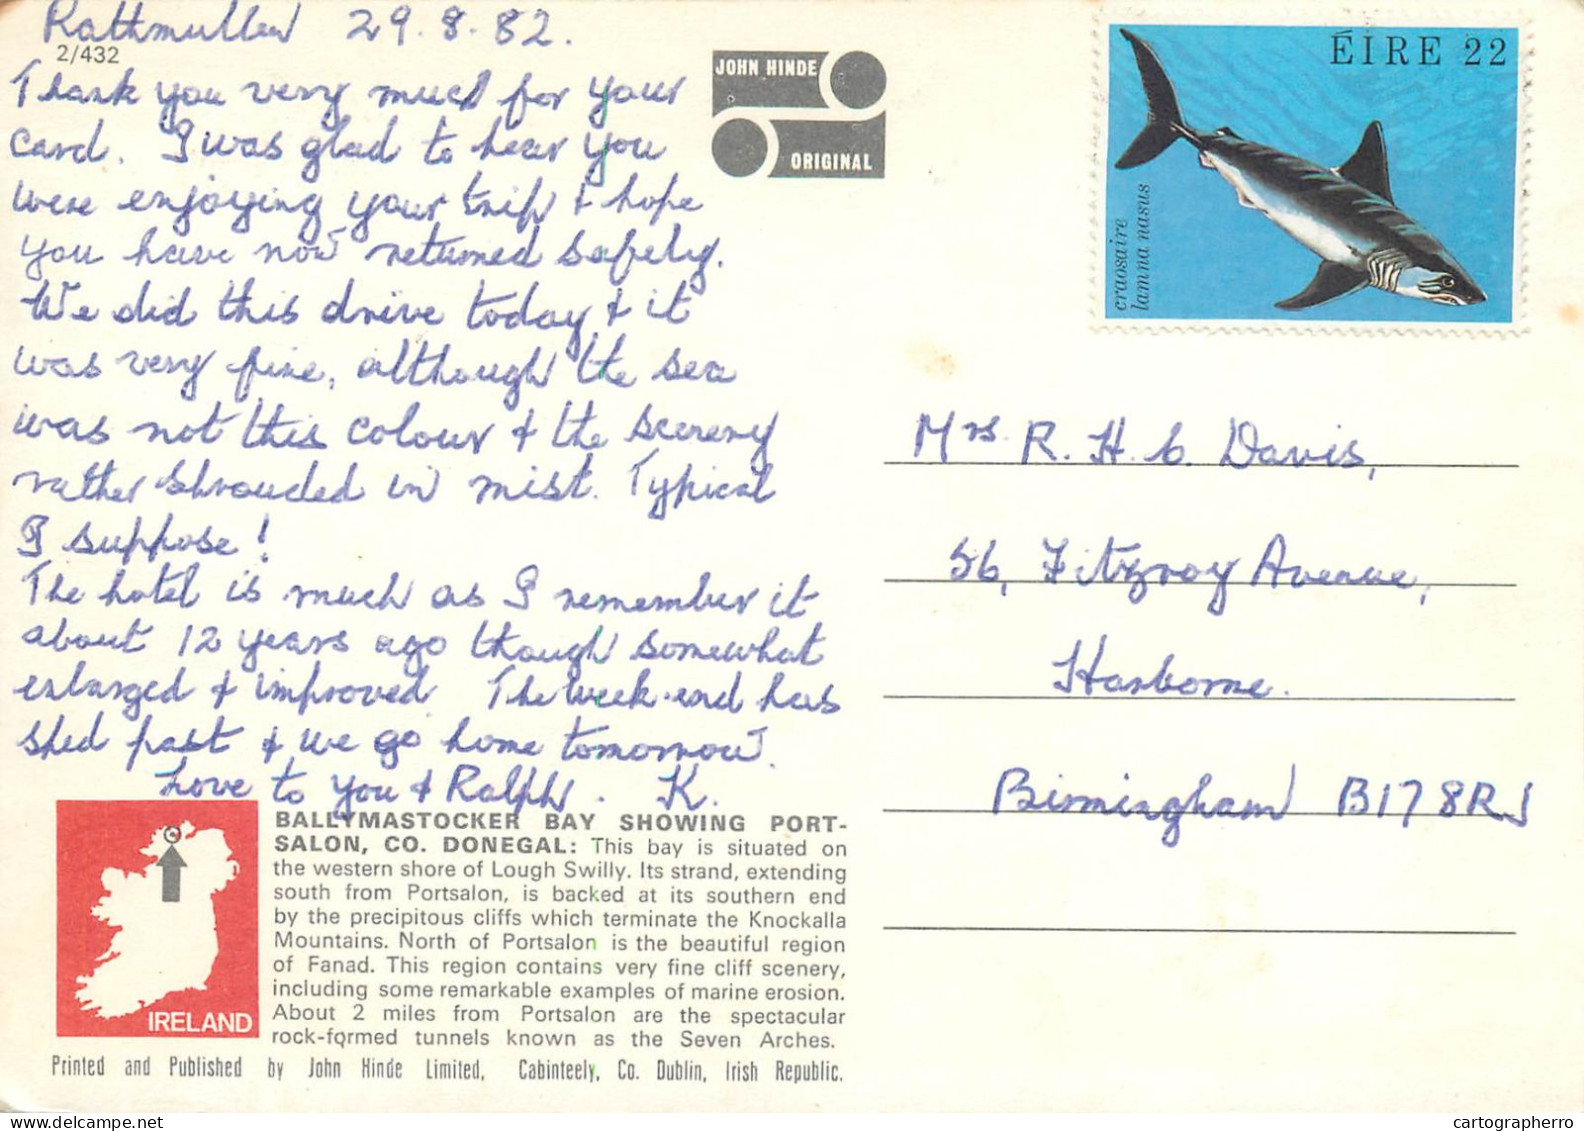 Rathmullen 29.8.82.
2/432
Thank you very much for your
card. I was glad to hear you
were enjoying your trip & hope
you have now returned safely.
We did this drive today & it
was very fine, although the sea
was not this colour & the scenery
rather shrouded in mist. Typical
I suppose!
The hotel is much as I remember it
about 12 years ago though somewhat
enlarged & improved. The week-end has
sped past & we go home tomorrow.
Love to you & Ralph. K.
JOHN HINDE
ORIGINAL
ÉIRE 22
craosaire
lamna nasus
Mrs R. H. C. Davis,
56, Fitzroy Avenue,
Harborne.
Birmingham B17 8RJ
IRELAND
BALLYMASTOCKER BAY SHOWING PORT-
SALON, CO. DONEGAL: This bay is situated on
the western shore of Lough Swilly. Its strand, extending
south from Portsalon, is backed at its southern end
by the precipitous cliffs which terminate the Knockalla
Mountains. North of Portsalon is the beautiful region
of Fanad. This region contains very fine cliff scenery,
including some remarkable examples of marine erosion.
About 2 miles from Portsalon are the spectacular
rock-formed tunnels known as the Seven Arches.
Printed and Published by John Hinde Limited, Cabinteely, Co. Dublin, Irish Republic.
delcampe.net
cartographerro